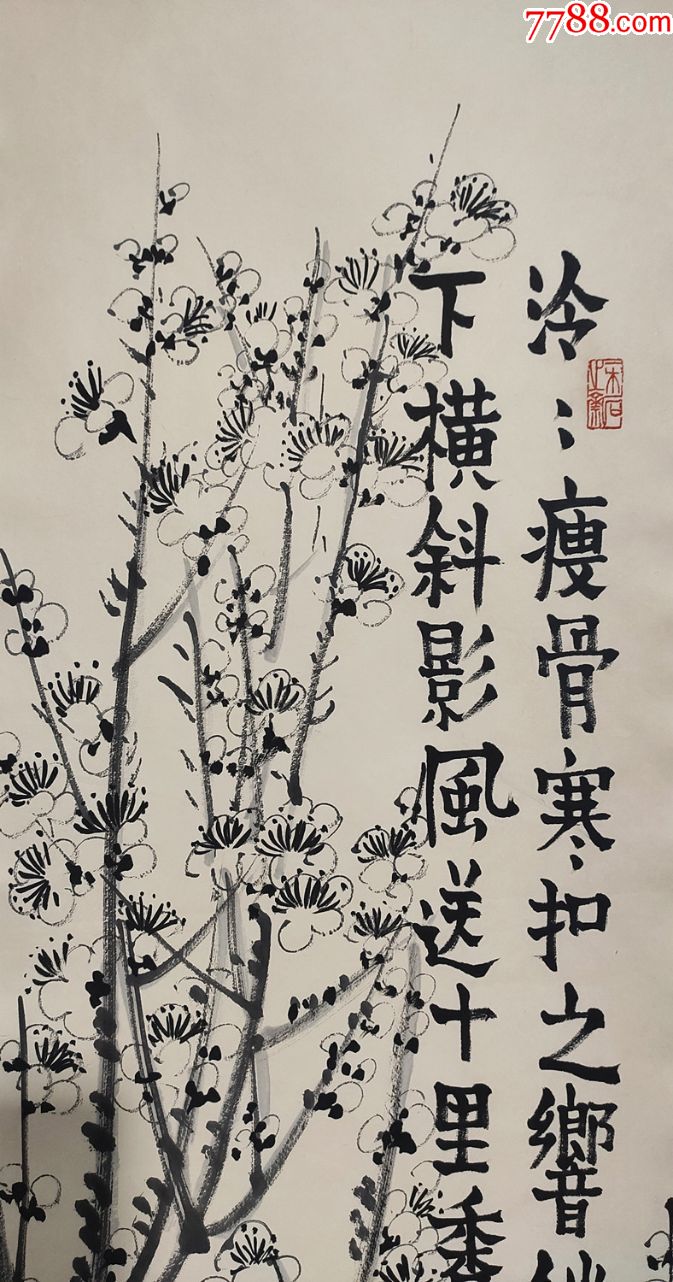 7788.com
泠〻瘦骨寒扣之響
下橫斜影風送十里香